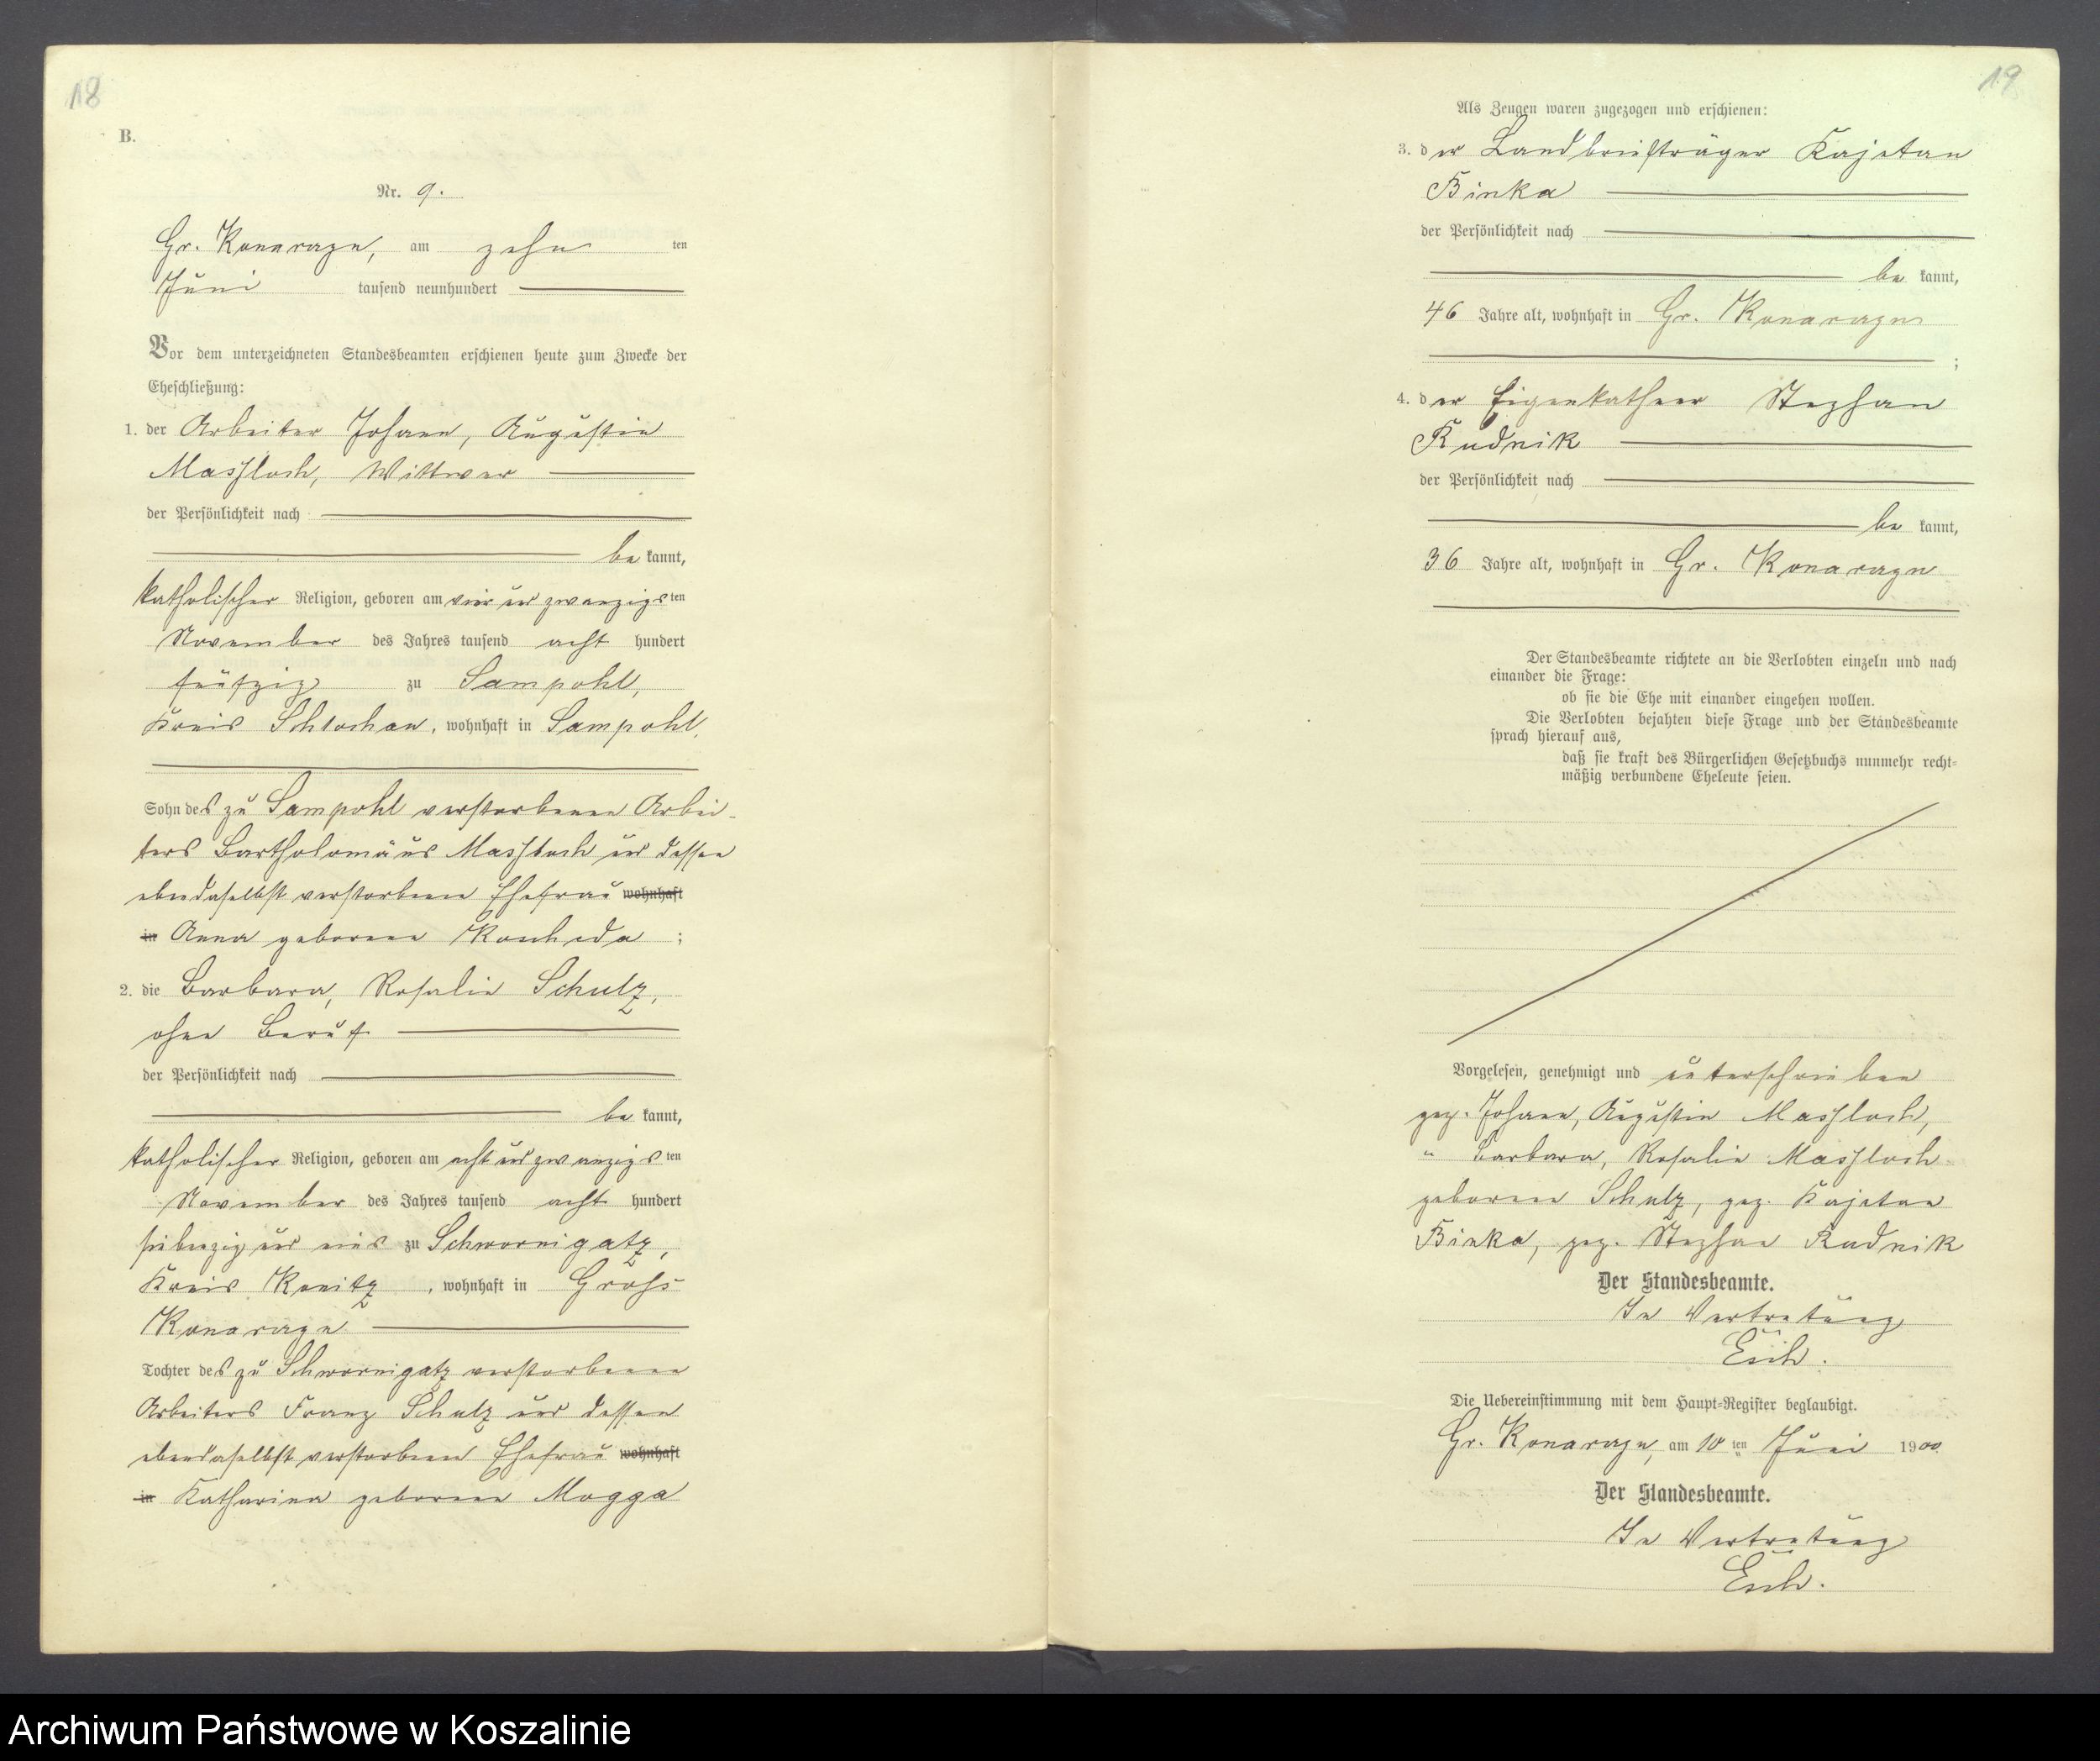 18
B.
Nr. 9.
Gr. Konarzyn, am zehn ten
Juni tausend neunhundert
Vor dem unterzeichneten Standesbeamten erschienen heute zum Zwecke der
Eheschließung:
1. der Arbeiter Johann, Augustin
Masloch, Wittwer
der Persönlichkeit nach
be kannt,
katholischer Religion, geboren am vier und zwanzigs ten
November des Jahres tausend acht hundert
fünfzig zu Sampohl,
Kreis Schlochau, wohnhaft in Sampohl,
Sohn des zu Sampohl verstorbenen Arbei-
ters Bartholomäus Masloch und dessen
ebendaselbst verstorbenen Ehefrau wohnhaft
in Anna geborene ;
2. die Barbara, Rosalie Schulz,
ohne Beruf
der Persönlichkeit nach
be kannt,
katholischer Religion, geboren am acht und zwanzigs ten
November des Jahres tausend acht hundert
siebenzig und eins zu Schwornigatz,
Kreis Konitz, wohnhaft in Gross
Konarzyn
Tochter des zu Schwornigatz verstorbenen
Arbeiters Franz Schulz und dessen
ebendaselbst verstorbenen Ehefrau wohnhaft
in Katharina geborene Mogga
19
Als Zeugen waren zugezogen und erschienen:
3. der Landbriefträger Kajetan
Binka
der Persönlichkeit nach
be kannt,
46 Jahre alt, wohnhaft in Gr. Konarzyn
;
4. der Eigenkathner Stephan
Rudnik
der Persönlichkeit nach
be kannt,
36 Jahre alt, wohnhaft in Gr. Konarzyn
Der Standesbeamte richtete an die Verlobten einzeln und nach
einander die Frage:
ob sie die Ehe mit einander eingehen wollen.
Die Verlobten bejahten diese Frage und der Standesbeamte
sprach hierauf aus,
daß sie kraft des Bürgerlichen Gesetzbuchs nunmehr recht=
mäßig verbundene Eheleute seien.
Vorgelesen, genehmigt und unterschrieben
gez. Johann, Augustin Masloch,
" Barbara, Rosalie Masloch
geborene Schulz, gez. Kajetan
Binka, gez. Stephan Rudnik
Der Standesbeamte.
In Vertretung
Esch.
Die Uebereinstimmung mit dem Haupt=Register beglaubigt.
Gr. Konarzyn, am 10 ten Juni 1900
Der Standesbeamte.
In Vertretung
Esch.
Archiwum Państwowe w Koszalinie